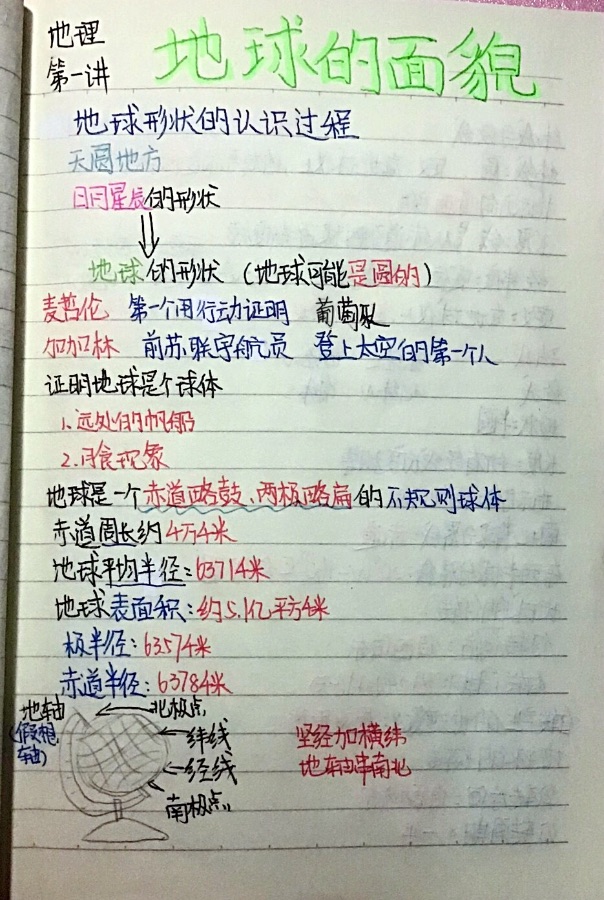 地理
第一讲
地球的面貌
地球形状的认识过程
天圆地方
日月星辰的形状
地球的形状（地球可能是圆的）
麦哲伦 第一个用行动证明 葡萄牙
加加林 前苏联宇航员 登上太空的第一个人
证明地球是个球体
1.远处的帆船
2.月食现象
地球是一个赤道略鼓、两极略扁的不规则球体
赤道周长约4万千米
地球平均半径：6371千米
地球表面积：约5.1亿平方千米
极半径：6357千米
赤道半径：6378千米
地轴
(假想轴)
北极点
纬线
经线
南极点
竖经加横纬
地轴串南北